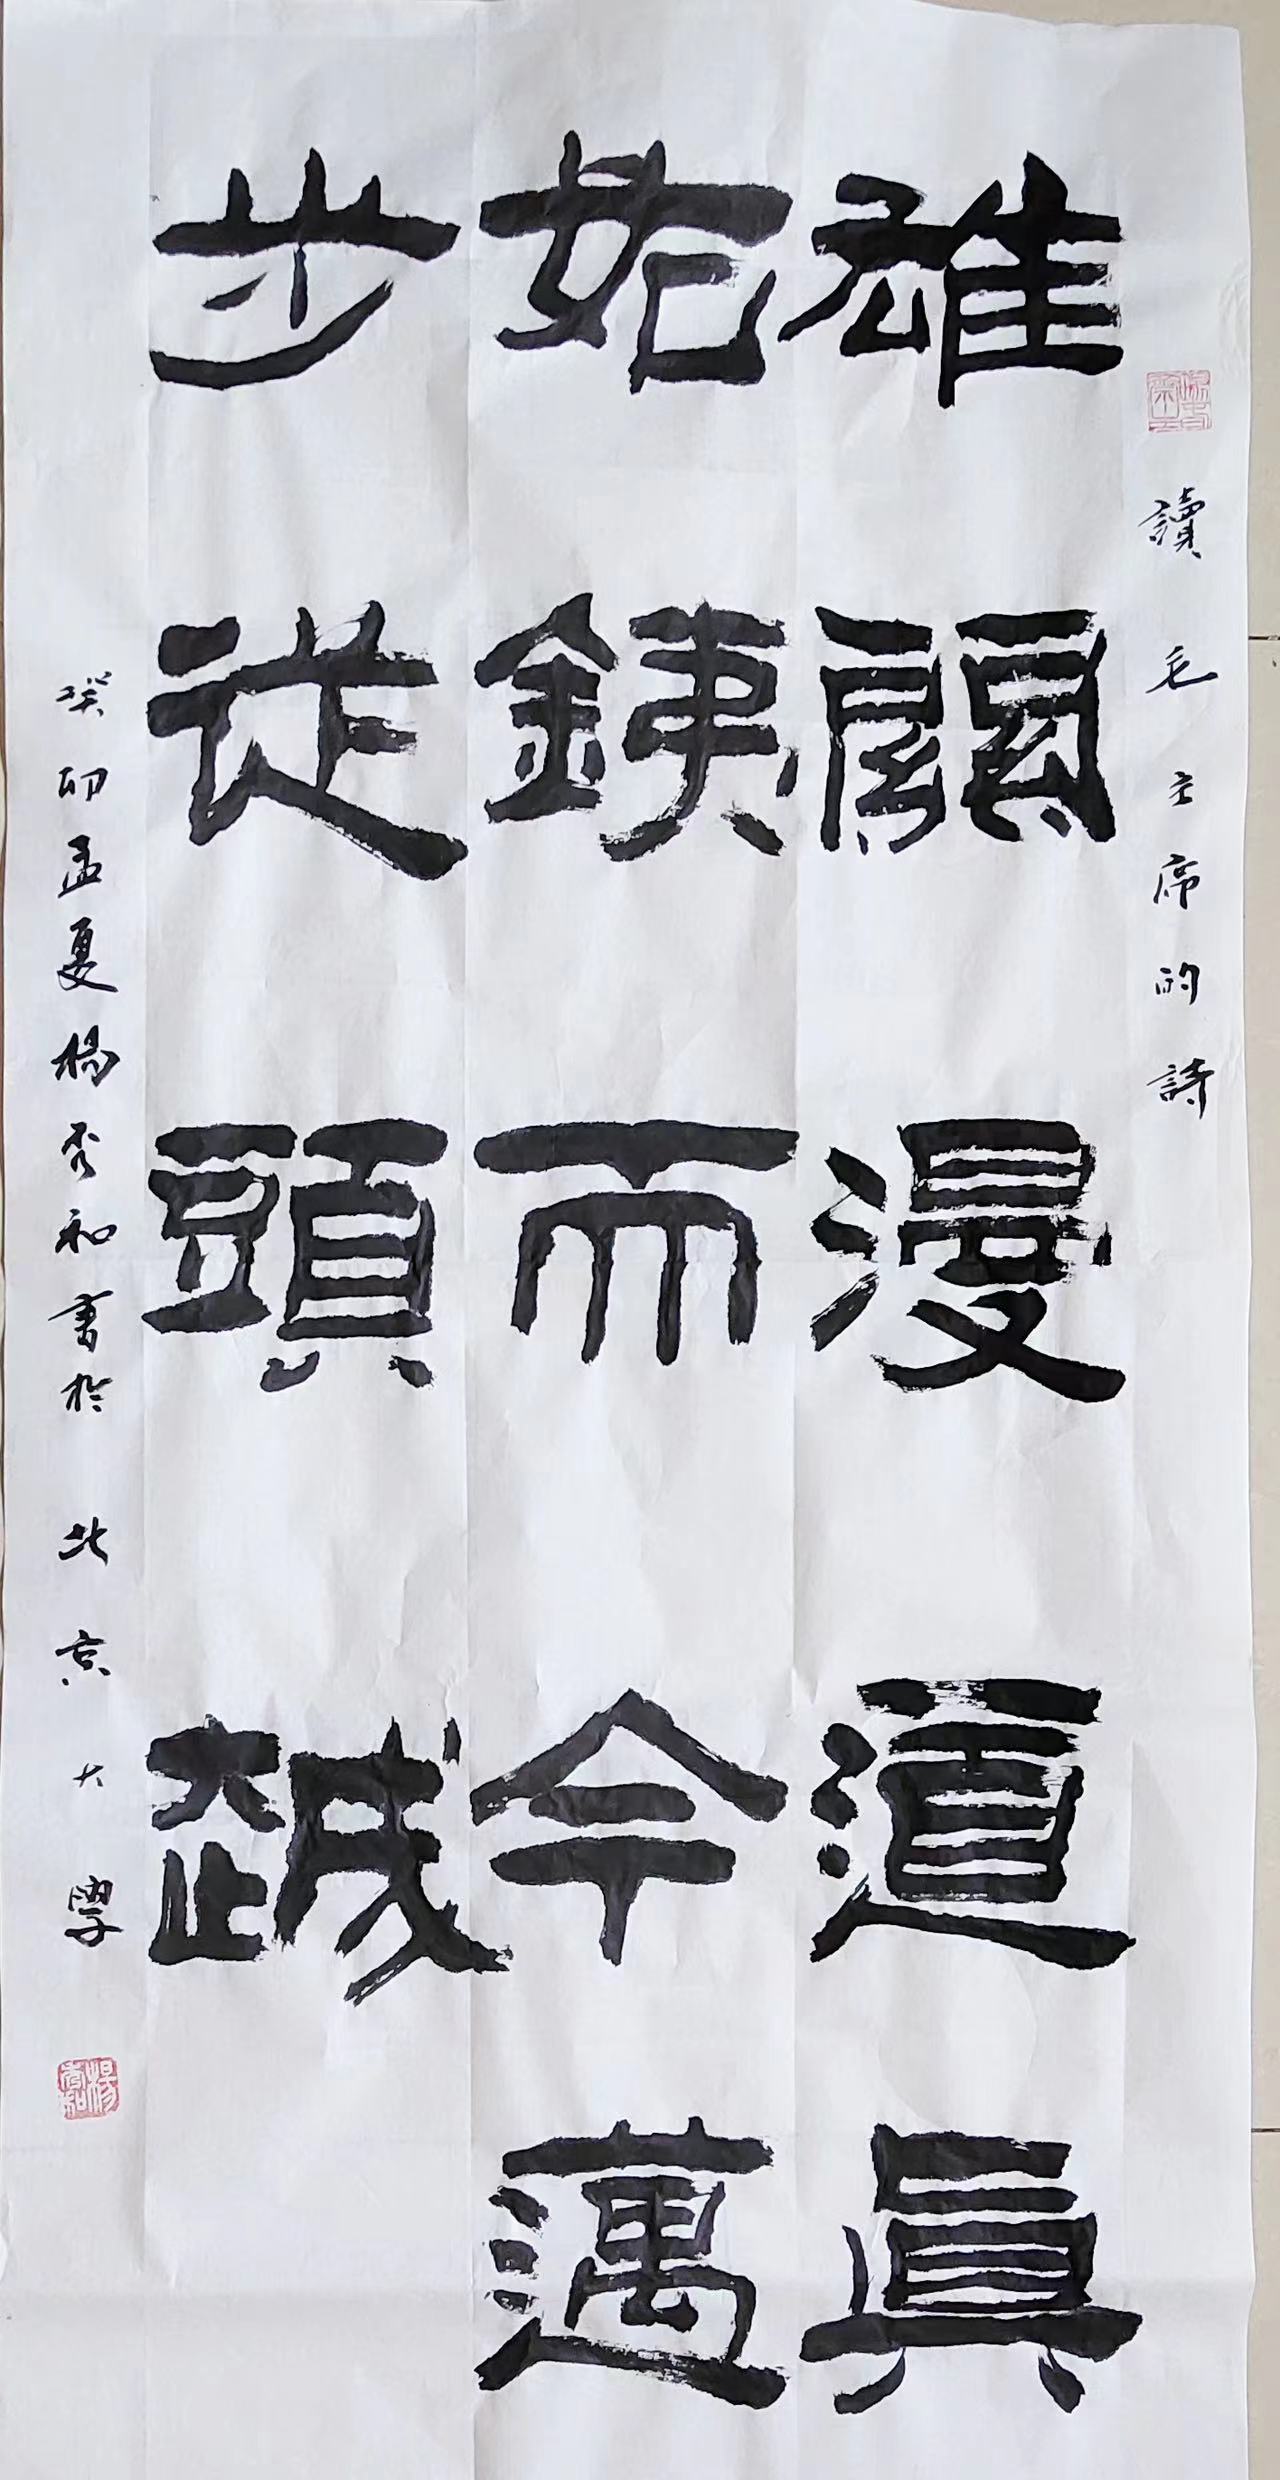 讀毛主席的詩
雄關漫道眞
如銕而今邁
步從頭越
癸卯孟夏楊秀和書於北京大學
楊秀和